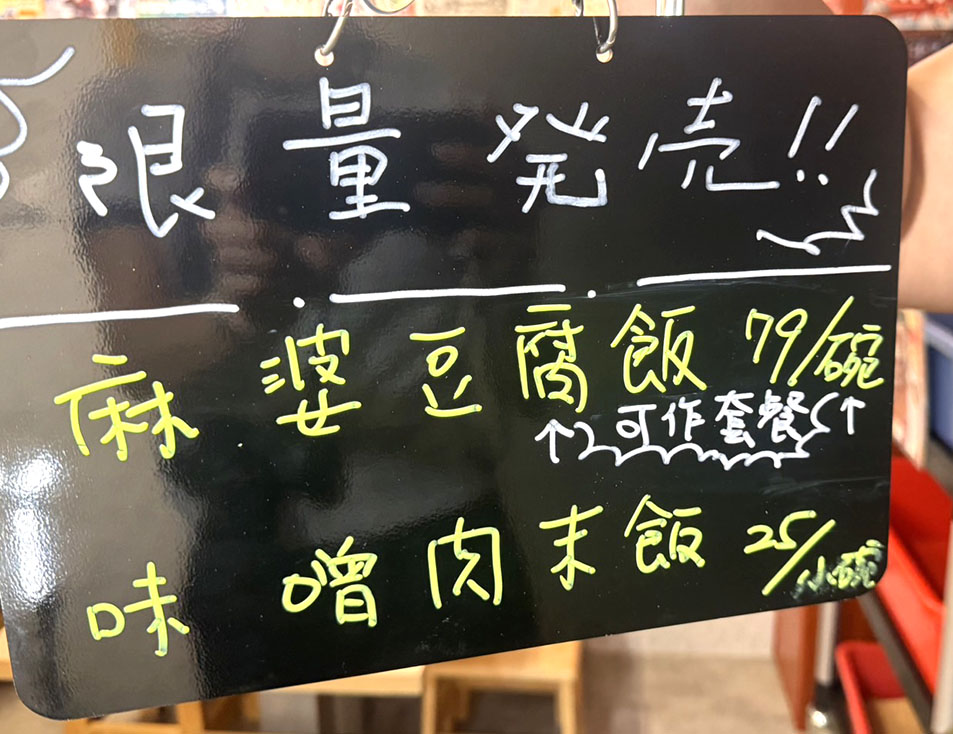 限量発売!!
麻婆豆腐飯 79/碗
↑可作套餐↑
味噌肉末飯 25/小碗